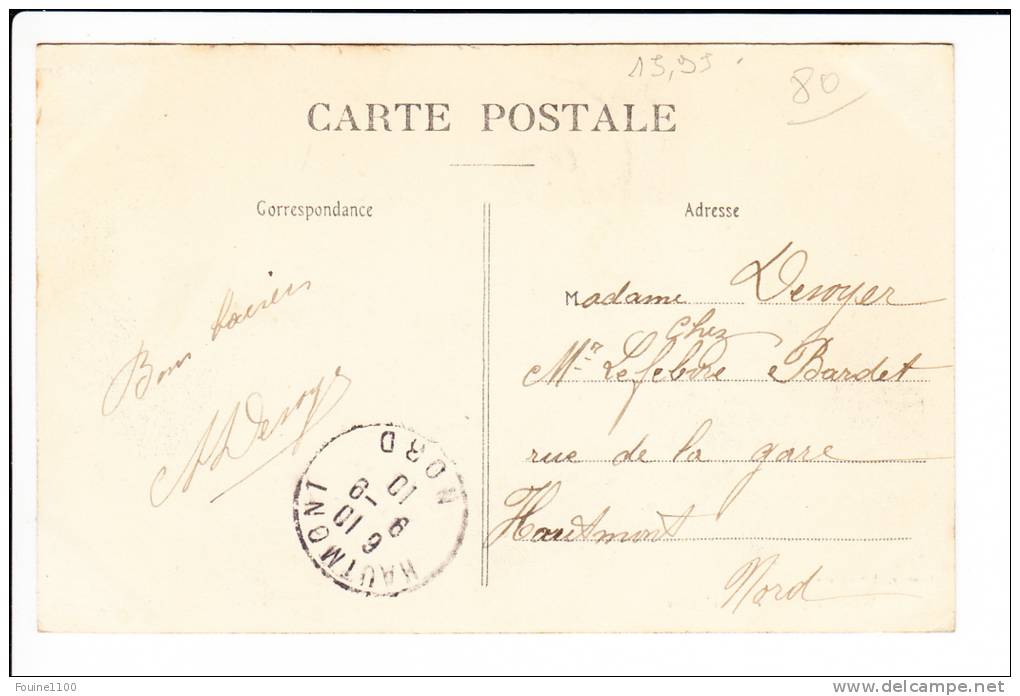 15,95
80
CARTE POSTALE
Correspondance
Adresse
Bons baisers
Madame Devoyer
chez
Mr Lefebvre Bardet
rue de la gare
Hautmont
Nord
HAUTMONT
NORD
Foune1100
www.delcampe.net